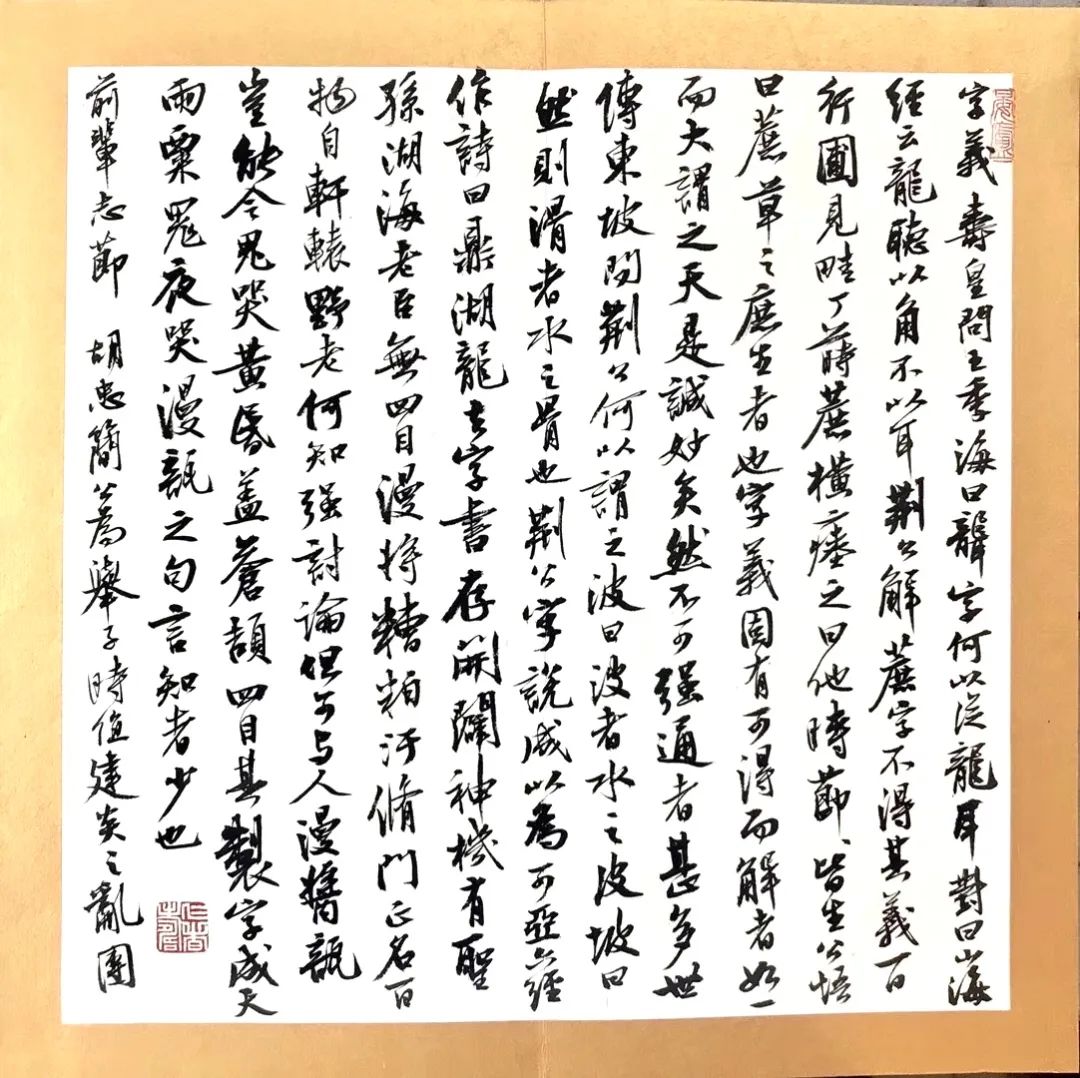 字義 壽皇問王季海曰聾字何以從龍耳對曰山海
經云龍聽以角不以耳荊公解蔗字不得其義一日
行圃見畦丁蒔蔗橫瘞之曰他時節節皆生公悟
曰蔗草之庶生者也字義固有可得而解者如一
而大謂之天是誠妙矣然不可強通者甚多世
傳東坡問荊公何以謂之波曰波者水之皮坡曰
然則滑者水之骨也荊公字說成以為可亞六經
作詩曰鼎湖龍去字書存開闢神機有聖
孫湖海老臣無四目漫將糟粕汙脩門正名百
物自軒轅野老何知強討論但可与人漫醬瓿
豈能令鬼哭黃昏蓋蒼頡四目其製字成天
雨粟鬼夜哭漫瓿之句言知者少也
前輩志節 胡忠簡公為舉子時值建炎之亂團